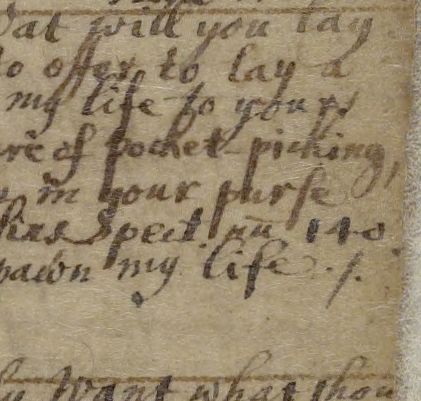 hat will you lay
to offer to lay a
my life to yours
re of pocket-picking,
in your purse
Spect. 140
pawn my life ./.
want what shou